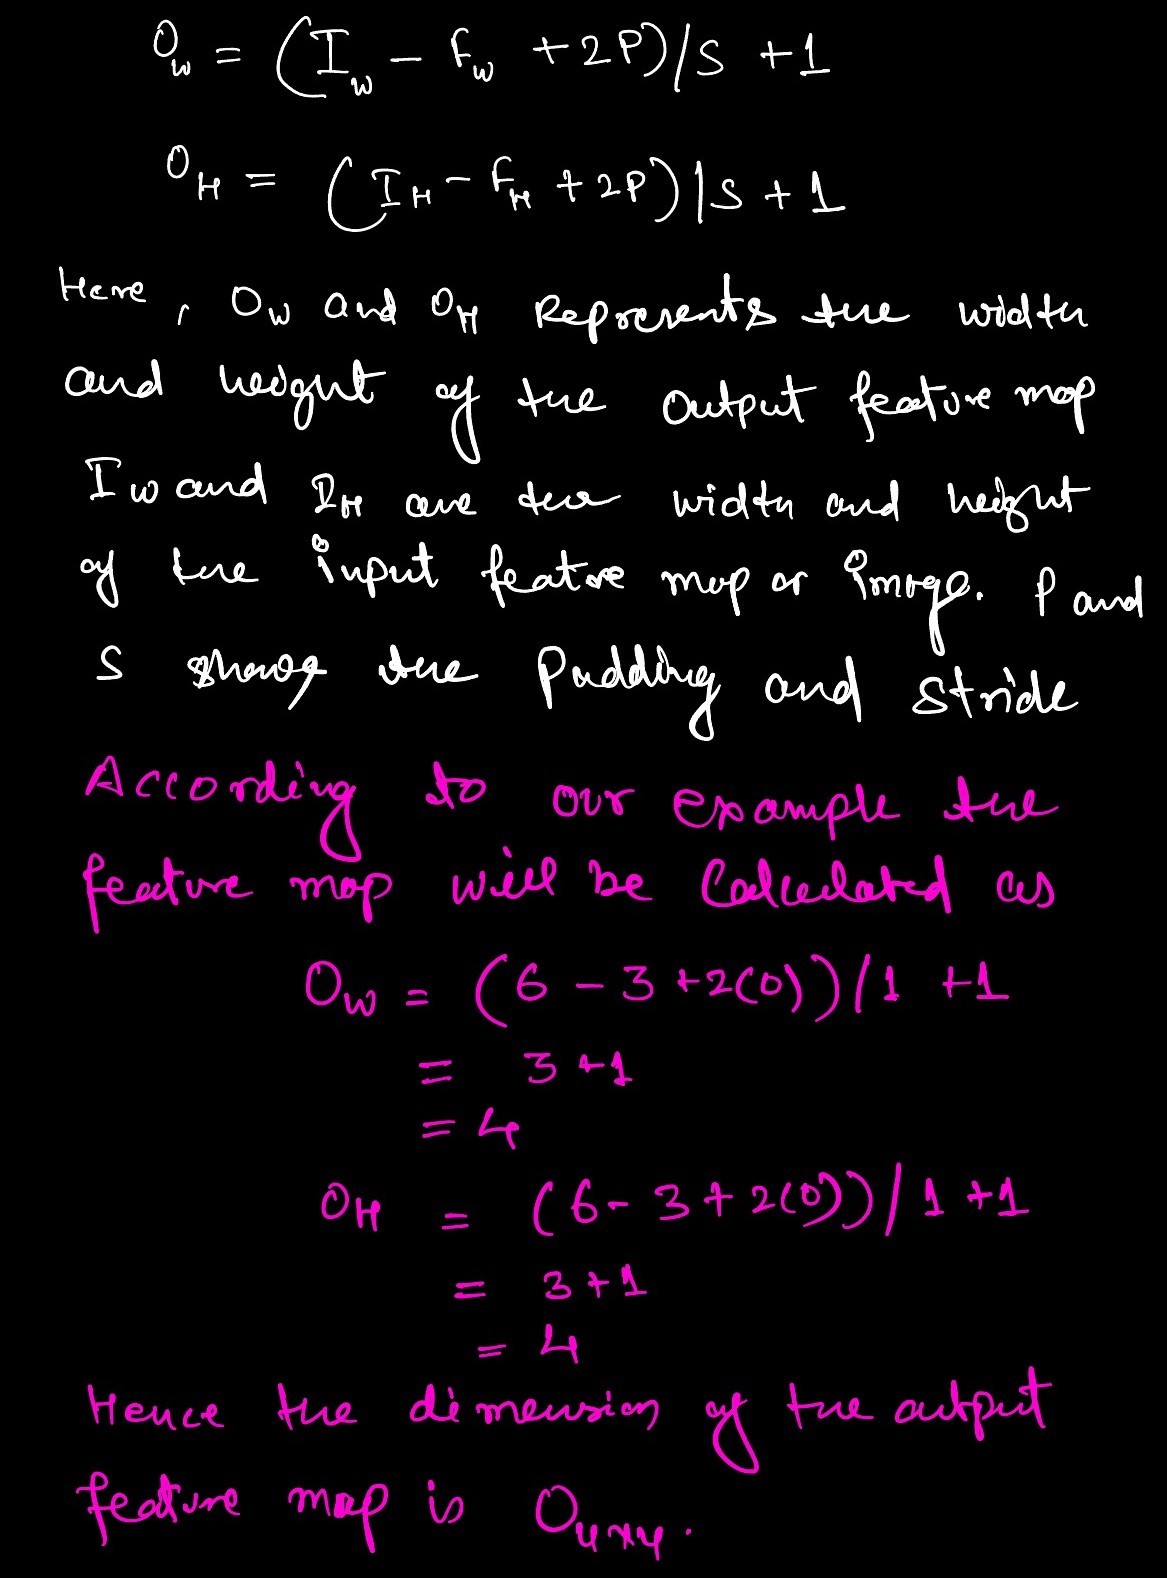 O_W = (I_W - F_W + 2P)/S + 1
O_H = (I_H - F_H + 2P)/S + 1
Here, O_W and O_H Represents the width
and height of the output feature map
I_W and I_H are the width and height
of the input feature map or image. P and
S shows the Padding and stride
According to our example the
feature map will be Calculated as
O_W = (6 - 3 + 2(0))/1 + 1
= 3 + 1
= 4
O_H = (6 - 3 + 2(0))/1 + 1
= 3 + 1
= 4
Hence the dimension of the output
feature map is O_4x4.